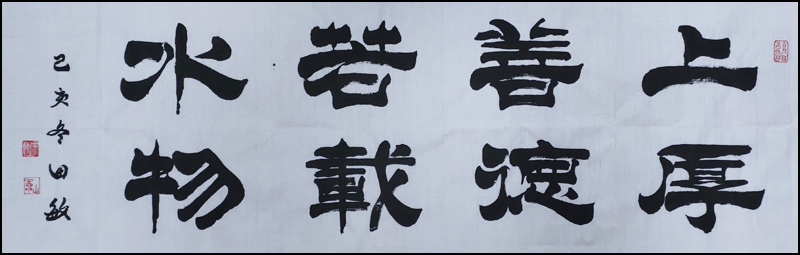 上厚
善德
若載
水物
己亥冬田敏